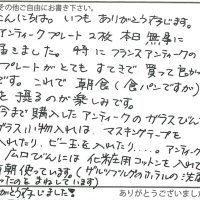 その他ご自由にお書き下さい。
こんにちは。いつもありがとうございます。
アンティークプレート2枚 本日無事に
届きました。特にフランスアンティークの
プレートがとても すてきで 買って良かった
です。これで 朝食（食パンですが）
を撮るのが楽しみです。
今まで購入したアンティークのガラスびん
ガラス小物入れは、マスキングテープを
入れたり、ビー玉を入れたり....。アンティーク
広口びんには 化粧用コットンを入れて
毎朝使っています。
たのをまねしています）
ありがとうございました